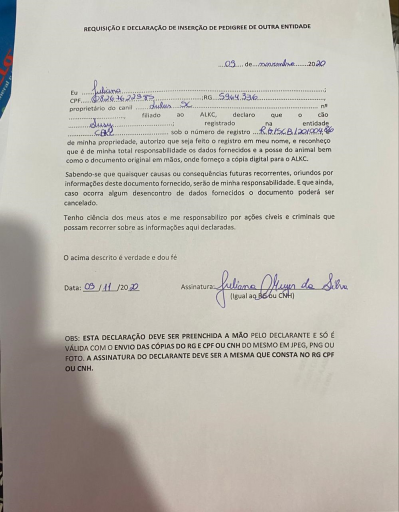 REQUISIÇÃO E DECLARAÇÃO DE INSERÇÃO DE PEDIGREE DE OUTRA ENTIDADE
....09.... de..novembro......2020
Eu ....Juliana....;
CPF....;RG 5964.336....
proprietário do canil .... SC.... nº
....; filiado ao ALKC, declaro que o cão
....Suzy....; registrado na entidade
....CBKC.... sob o número de registro
de minha propriedade, autorizo que seja feito o registro em meu nome, e reconheço
que é de minha total responsabilidade os dados fornecidos e a posse do animal bem
como o documento original em mãos, onde forneço a cópia digital para o ALKC.
Sabendo-se que quaisquer causas ou consequências futuras recorrentes, oriundos por
informações deste documento fornecido, serão de minha responsabilidade. E que ainda,
caso ocorra algum desencontro de dados fornecidos o documento poderá ser
cancelado.
Tenho ciência dos meus atos e me responsabilizo por ações cíveis e criminais que
possam recorrer sobre as informações aqui declaradas.
O acima descrito é verdade e dou fé
Data: 09/11/2020 Assinatura: Juliana da Silva
(Igual ao RG ou CNH)
OBS: ESTA DECLARAÇÃO DEVE SER PREENCHIDA A MÃO PELO DECLARANTE E SÓ É
VÁLIDA COM O ENVIO DAS CÓPIAS DO RG E CPF OU CNH DO MESMO EM JPEG, PNG OU
FOTO. A ASSINATURA DO DECLARANTE DEVE SER A MESMA QUE CONSTA NO RG CPF
OU CNH.